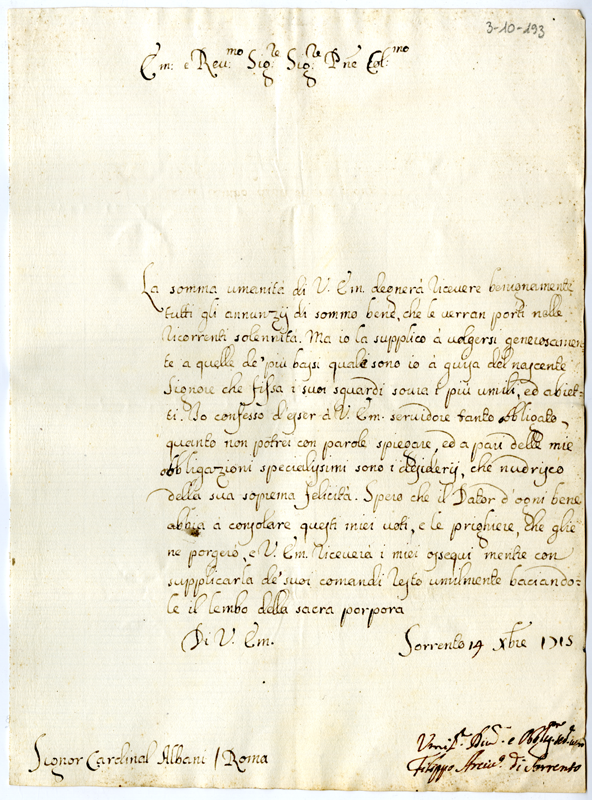 3-10-193
Em: e Reu:mo Sig:re Sig:re Prне Col:mo
La somma umanità di V. Em. degnerà riceuere benignamente
tutti gli annunzij di sommo bene, che le uerran porti nelle
ricorrenti solennità. Ma io la supplico à uolgersi generosamen=
te a quelle de' più bassi quale sono io à guisa del nascente
Signore che fissa i suoi sguardi soura i più umili, ed abiet=
ti. Io confesso d'esser à V. Em. seruidore tanto obligato,
quanto non potrei con parole spiegare, ed a pari delle mie
obbligazioni specialissimi sono i desiderij, che nudrisco
della sua soprema felicità. Spero che il Dator d'ogni bene
abbia à consolare questi miei uoti, e le prighiere, che glie
ne porgerò, e V. Em. riceuerà i miei ossequi mentre con
supplicarla de' suoi comandi resto umilmente baciando=
le il lembo della sacra porpora
Di V. Em.
Sorrento 14 Xbre 1715
Signor Cardinal Albani / Roma
Filippo Arciu.o di Sorrento